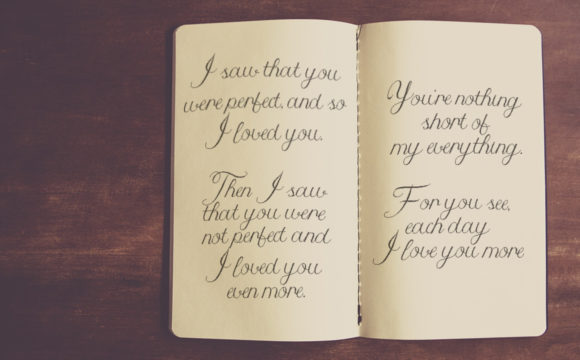 I saw that you
were perfect, and so
I loved you.
Then I saw
that you were
not perfect and
I loved you
even more.
You're nothing
short of
my everything.
For you see,
each day
I love you more